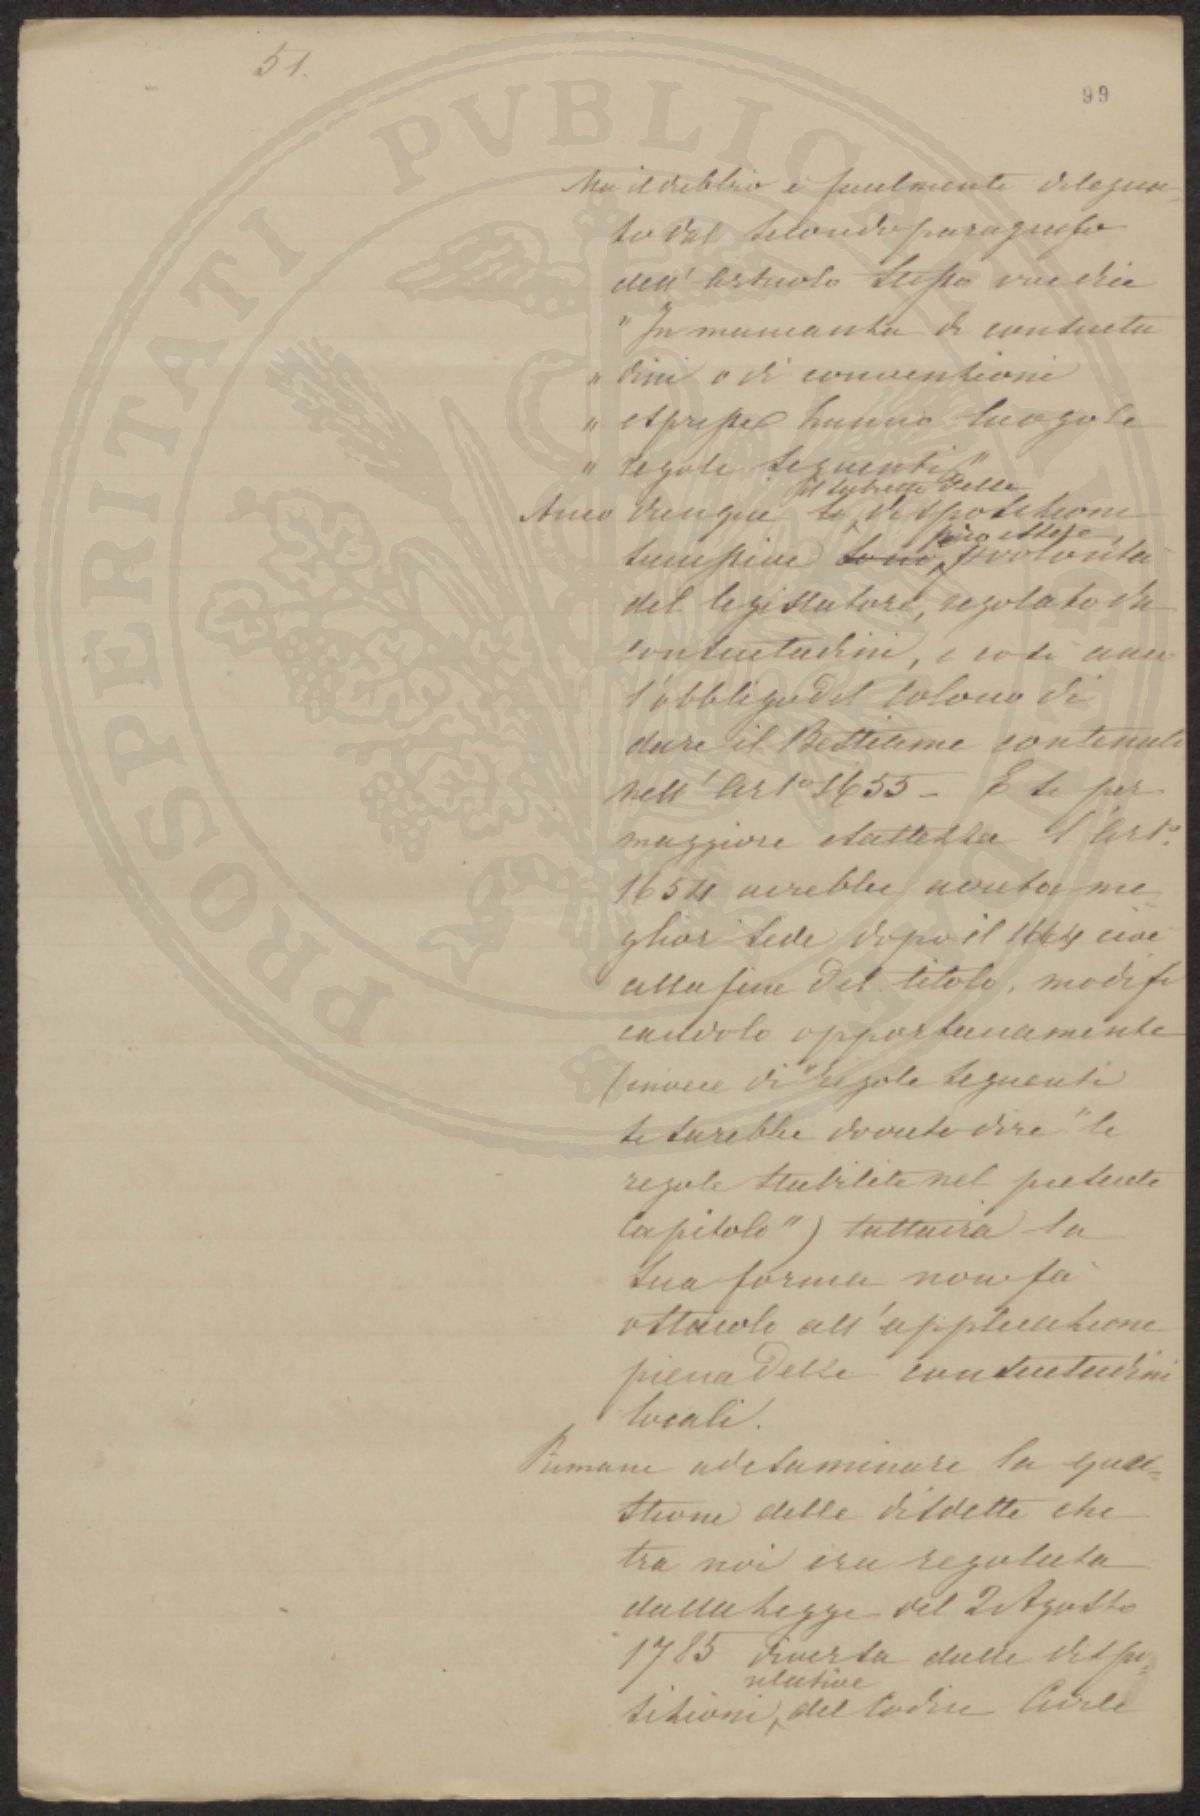 51.
99
Ma il dubbio è facilmente dilegua-
to dal secondo paragrafo
dell'Articolo stesso ove dice
"In mancanza di consuetu
" dini o di convenzioni
" espresse hanno luogo le
" regole seguenti"
il subietto delle
Anco dunque le disposizioni
può essere,
successive sono, per volontà
del legislatore, regolato da
consuetudini, e così anco
l'obbligo del colono di
dare il Bestiame contenuto
nell'Arto 1655 - E se per
maggiore esattezza l'Arto
1654 avrebbe avuta mi-
glior sede dopo il 1664 cioè
alla fine del titolo, modifi
candolo opportunamente
(invece di "regole seguenti
si sarebbe dovuto dire "le
regole stabilite nel presente
Capitolo") tuttavia la
sua forma non fa
ostacolo all'applicazione
piena delle consuetudini
locali.
Rimane ad esaminare la que-
stione delle disdette che
tra noi era regolata
dalla Legge del 2 Agosto
1785 diversa dalle dispo-
relative
sizioni, del Codice Civile
PROSPERITATI PVBLICAE